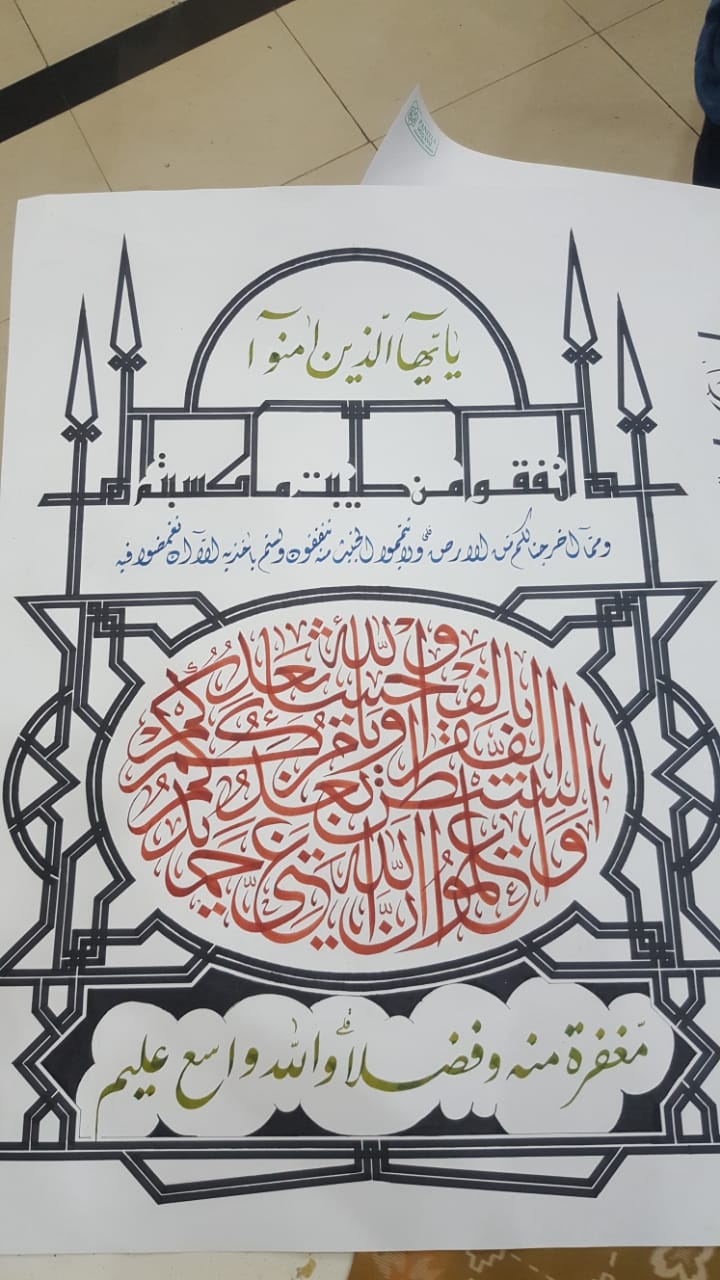 يٰايّهآ الّذين اٰمنوٓا
انفقوا من طيبت ما كسبتم
وممّآ اخرجنا لكم من الارض ولا تيمموا الخبيث منه تنفقون ولستم باخذيه الّآ ان تغمضوا فيه
واعلموا انّ الله غنيّ حميد
الشّيطن يعدكم
الفقر ويأمركم
بالفحشاء والله يعدكم
مّغفرة منه وفضلا والله واسع عليم